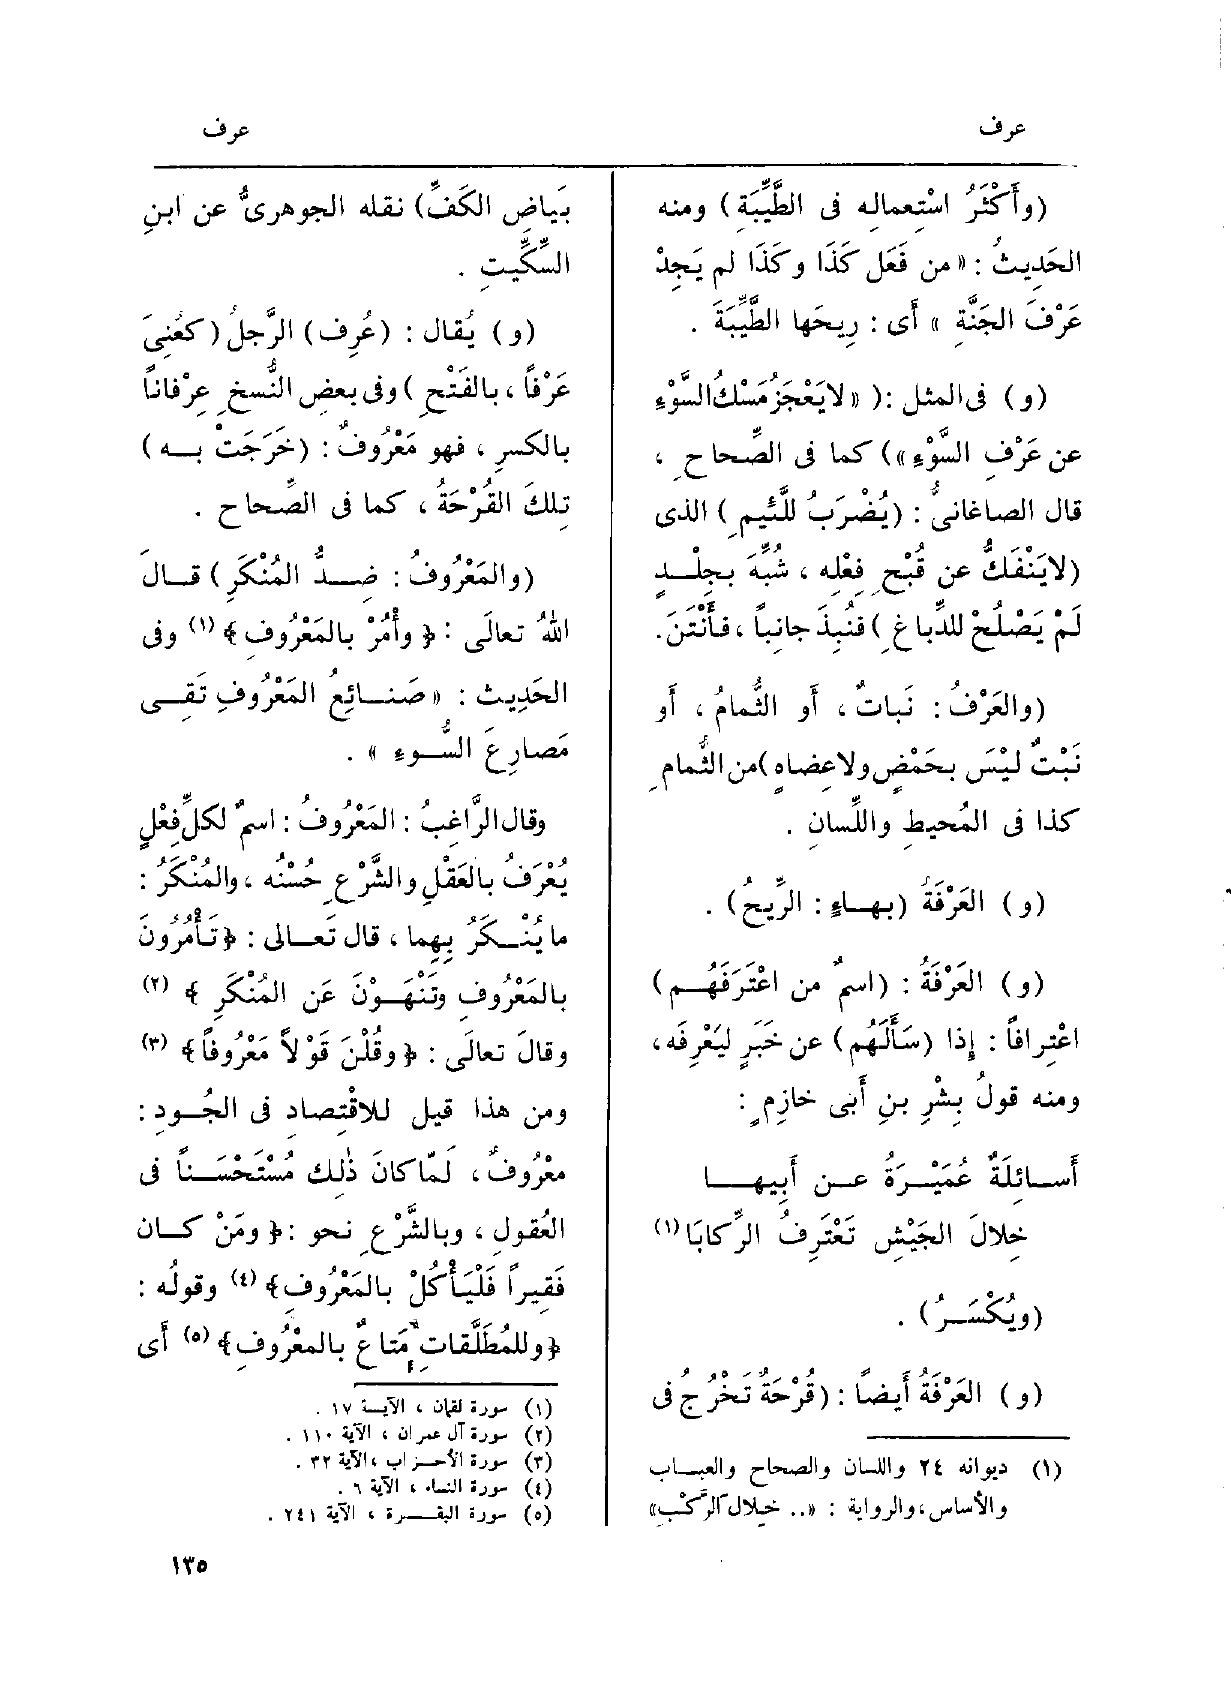 عرف
عرف
(وأَكْثَرُ اسْتِعمالِه فى الطَّيِّبَةِ) ومنه
الحَدِيثُ : « من فَعَل كَذَا وكَذَا لم يَجِدْ
عَرْفَ الجَنَّةِ » أى : رِيحَها الطَّيِّبَةَ .
(و) فى المثل : ( « لايَعْجَزُ مَسْكُ السَّوْءِ
عن عَرْفِ السَّوْءِ» ) كما فى الصِّحاحِ ،
قال الصاغانىُّ : (يُضْرَبُ للَّئِيمِ ) الذى
(لايَنْفَكُّ عن قُبْحِ فِعْلِه ، شُبِّهَ بجِلْـدٍ
لَمْ يَصْلُحْ للدِّباغِ ) فنُبِذَ جانِباً ، فأَنْتَنَ.
(والعَرْفُ: نَباتٌ ، أو الثُّمامُ ، أو
نَبْتٌ لَيْسَ بحَمْضٍ ولاعِضاهٍ )من الثُّمامِ
كذا فى المُحيطِ واللِّسانِ .
(و) العَرْفَةُ (بهـاءٍ : الرِّيحُ) .
(و) العَرْفَةُ : (اسمٌ من اعْتَرَفَهُـم )
اعْتِرافاً : إِذا (سَأَلَهُم ) عن خَبَرٍ لِيَعْرِفَه ،
ومنه قولُ بِشْرِ بنِ أَبى خازِمٍ :
أَسـائِلَةٌ عُمَيْـرَةُ عـن أَبِيهـا
خِلالَ الجَيْشِ تَعْتَرِفُ الرِّكابَا (١)
(ويُكْسَـرُ ) .
(و) العَرْفَةُ أَيضاً : (قُرْحَةٌ تَخْرُجُ فى
(١) ديوانه ٢٤ واللسان والصحاح والعبـاب
والأساس ، والرواية : «.. خِلالَ الرَّكْبِ»
بَيَاضِ الكَفِّ) نقله الجوهرىُّ عن ابنِ
السِّكِّيتِ .
(و) يُقال : (عُرِف) الرَّجلُ (كعُنِىَ
عَرْفاً ، بالفَتْحِ ) وفى بعض النُّسخِ عِرْفاناً
بالكسرِ ، فهو مَعْرُوفٌ : (خَرَجَتْ بـه )
تِلكَ القُرْحَةُ ، كما فى الصِّحاح .
(والمَعْرُوفُ : ضِـدُّ المُنْكَرِ ) قـالَ
اللهُ تعالَى : ﴿ وأْمُرْ بالمَعْرُوفِ ﴾ (١) وفى
الحَدِيث : « صَنـائِعُ المَعْرُوفِ تَقِـى
مَصارِعَ السُّـوءِ » .
وقال الرَّاغِبُ : المَعْرُوفُ : اسمٌ لكلِّ فِعْلٍ
يُعْرَفُ بالعَقْلِ والشَّرْعِ حُسْنُه ، والمُنْكَرُ :
ما يُنْـكَرُ بِهِما ، قال تَعـالى : ﴿ تَأْمُرُونَ
بالمَعْرُوفِ وتَنْهَـوْنَ عَن المُنْكَرِ ﴾ (٢)
وقالَ تعالَى : ﴿ وقُلْنَ قَوْلاً مَعْرُوفاً ﴾ (٣)
ومن هذا قيل للاقْتِصاد فى الجُودِ :
معْرُوفٌ ، لَمّا كانَ ذٰلك مُسْتَحْسَـناً فى
العُقولِ ، وبالشَّرْعِ نحو : ﴿ ومَنْ كـان
فَقِيراً فَلْيَأْكُلْ بالمَعْرُوفِ ﴾ (٤) وقولُه :
﴿وللمُطَلَّقاتِ مَتاعٌ بالمعْرُوفِ ﴾ (٥) أَى
(١) سورة لقمان ، الآيـة ١٧ .
(٢) سورة آل عمران ، الآية ١١٠ .
(٣) سورة الأحـزاب ، الآية ٣٢ .
(٤) سورة النساء ، الآية ٦ .
(٥) سورة البقـرة ، الآية ٢٤١ .
١٣٥